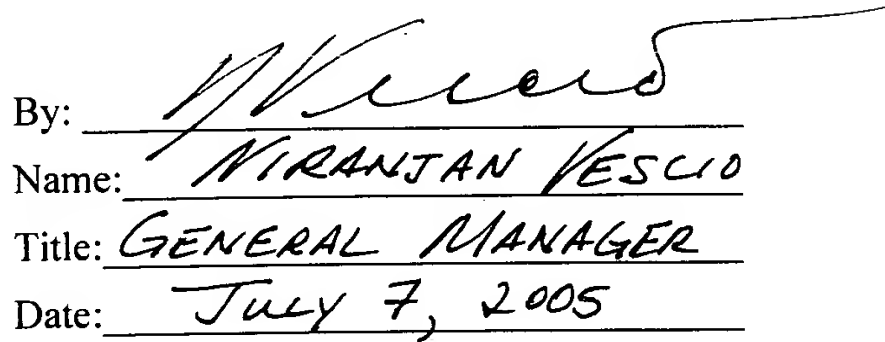 By: NVescio
Name: NIRANJAN VESCIO
Title: GENERAL MANAGER
Date: JULY 7, 2005